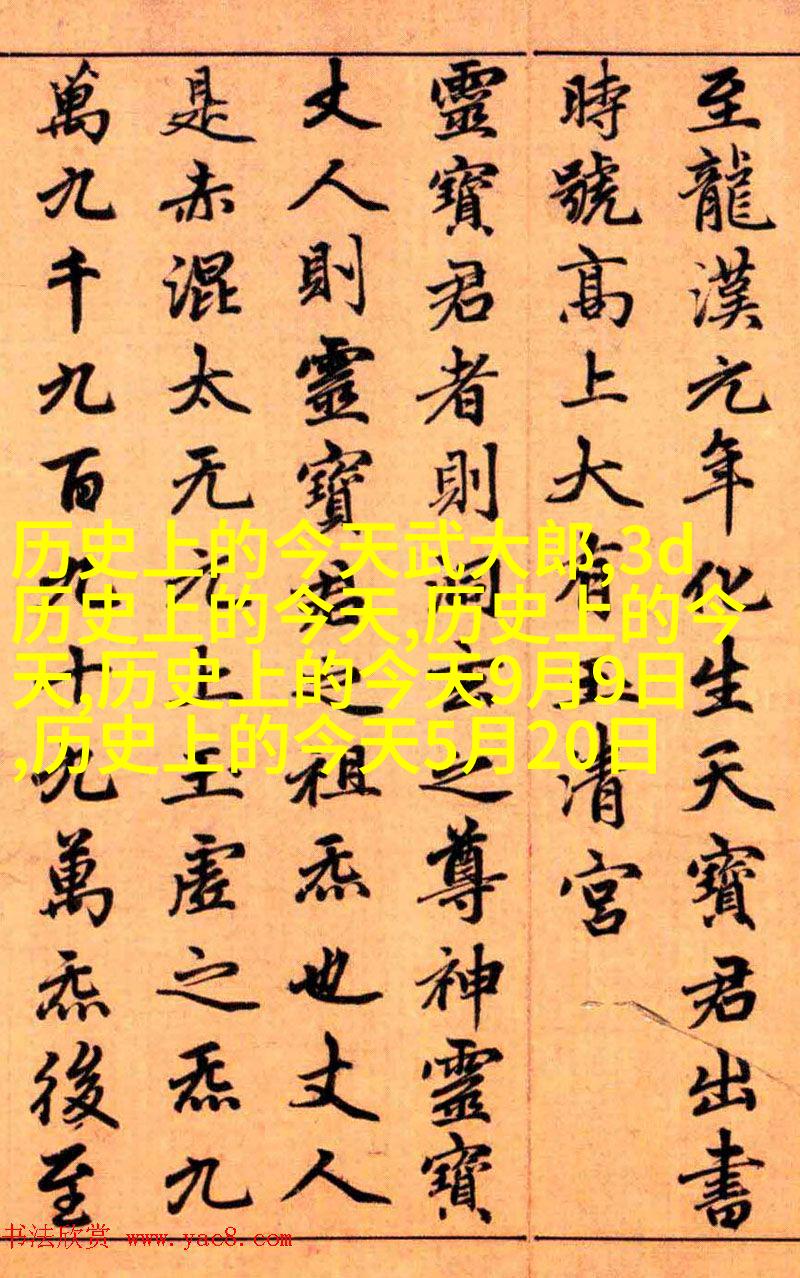 至龍漢元年化生天寶君出書
時號高上大有玉清宮
靈寶君者則洞玄之尊神靈寶
丈人則靈寶君之祖炁也丈人
是赤混太无元上玉虛之炁九
萬九千九百九十九萬炁後至
历史上的今天武大郎,3d
历史上的今天,历史上的今
天,历史上的今天9月9日
,历史上的今天5月20日
书法欣赏 www.yac8.com